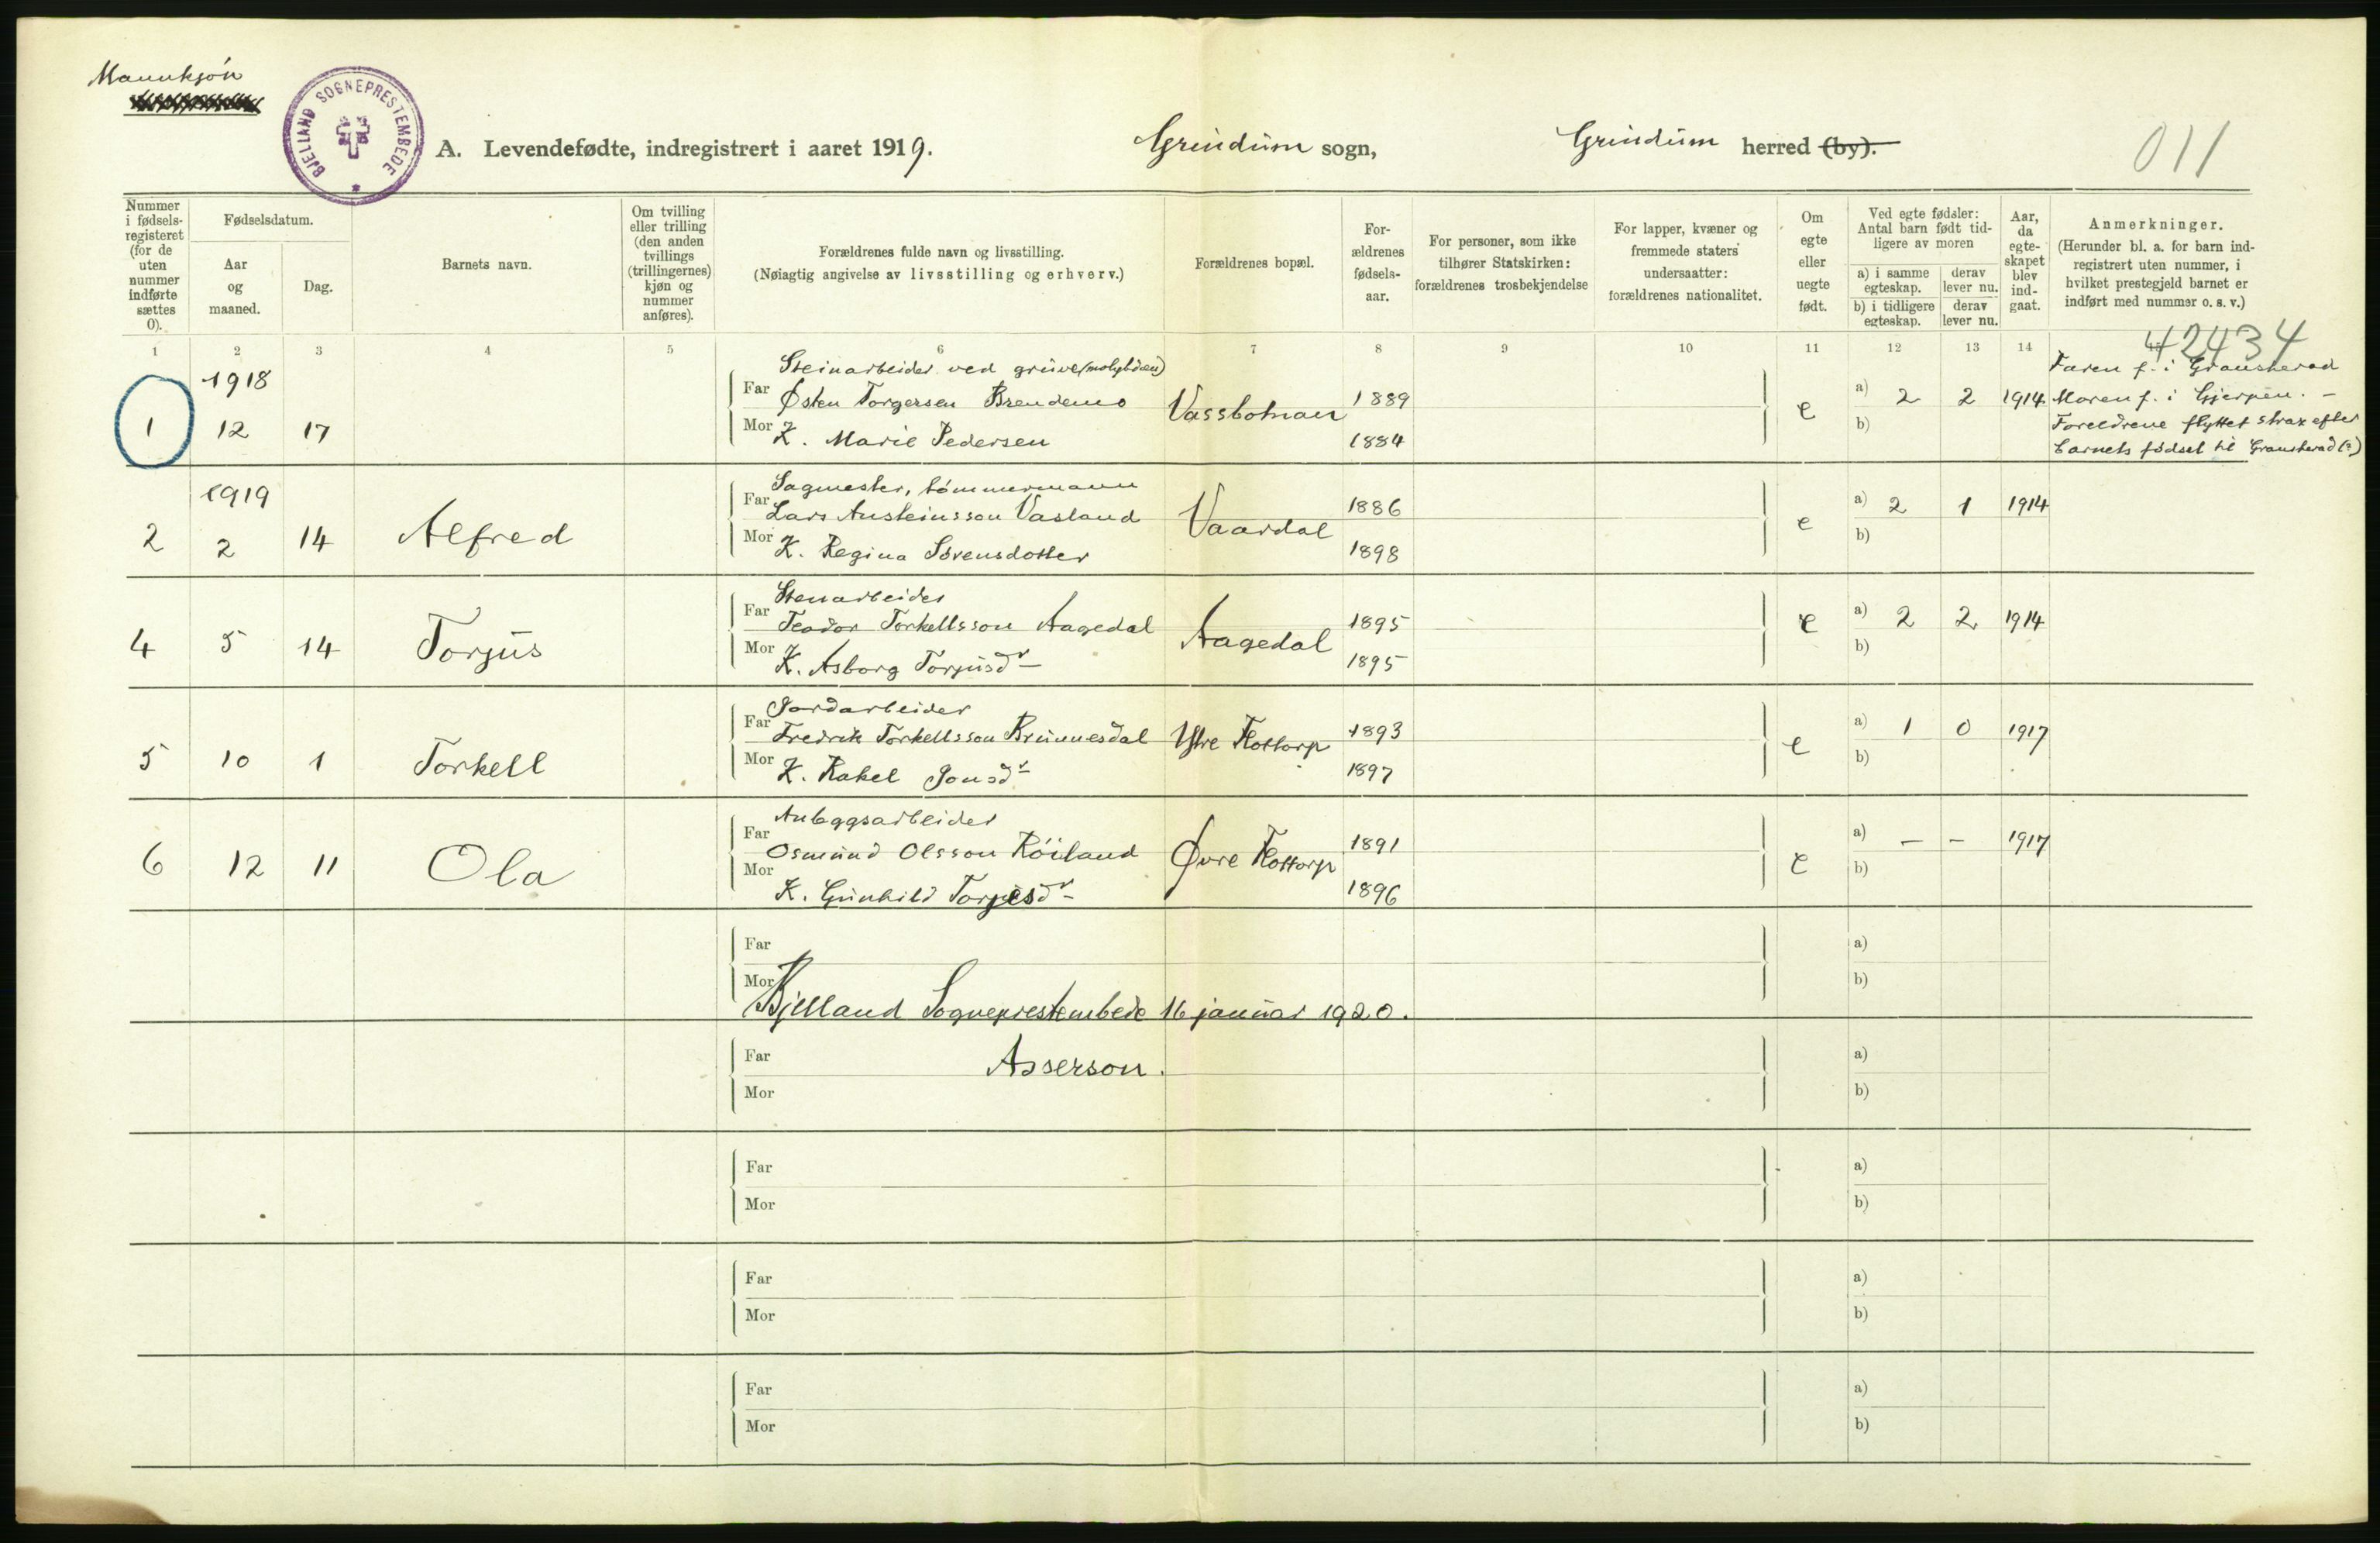 Mannkjøn
BJELLAND SOGNEPRESTEMBEDE
A. Levendefødte, indregistrert i aaret 1919. Grindum sogn, Grindum herred (by).
011
Nummer i fødsels-registeret (for de uten nummer indførte sættes 0).
Fødselsdatum.
Aar og maaned.
Dag.
Barnets navn.
Om tvilling eller trilling (den anden tvillings (trillingernes) kjøn og nummer anføres).
Forældrenes fulde navn og livsstilling.
(Nøiagtig angivelse av livsstilling og erhverv.)
Forældrenes bopæl.
For-ældrenes fødsels-aar.
For personer, som ikke tilhører Statskirken: forældrenes trosbekjendelse
For lapper, kvæner og fremmede staters undersaatter: forældrenes nationalitet.
Om egte eller uegte født.
Ved egte fødsler: Antal barn født tid-ligere av moren
a) i samme egteskap.
derav lever nu.
b) i tidligere egteskap.
derav lever nu.
Aar, da egte-skapet blev ind-gaat.
Anmerkninger.
(Herunder bl. a. for barn ind-registrert uten nummer, i hvilket prestegjeld barnet er indført med nummer o. s. v.)
1 2 3 4 5 6 7 8 9 10 11 12 13 14
42434
1918
Steinarbeider ved gruve (molybden)
Faren f. i Gransherad
Far Østen Torgersen Brendemo Vassbotnan 1889 e a) 2 2 1914 Moren f. i Gjerpen. –
1 12 17
Mor K. Marie Pedersen 1884 b)
Foreldrene flyttet strax efter
barnets fødsel til Gransherad (?)
1919
Sagmester, tømmermann
Far Lars Austeinsson Vasland Vaardal 1886 e a) 2 1 1914
2 2 14 Alfred
Mor K. Regina Sørensdotter 1898 b)
Stenarbeider
Far Teodor Torkellsson Aagedal Aagedal 1895 e a) 2 2 1914
4 5 14 Torjus
Mor K. Asborg Torjusdr 1895 b)
Jordarbeider
Far Fredrik Torkellsson Brunnesdal Ytre Flottorp 1893 e a) 1 0 1917
5 10 1 Torkell
Mor K. Rakel Jonsdr 1897 b)
Anleggsarbeider
Far Osmund Olsson Röiland Øvre Flottorp 1891 e a) – – 1917
6 12 11 Ola
Mor K. Gunhild Torjesdr 1896 b)
Far a)
Mor b)
Bjelland Sogneprestembede 16 januar 1920.
Far Asserson. a)
Mor b)
Far a)
Mor b)
Far a)
Mor b)
Far a)
Mor b)